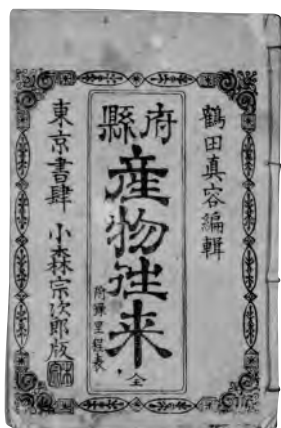 鶴田真容編輯
府縣
産物往来
全
附録里程表
東京書肆 小森宗次郎版